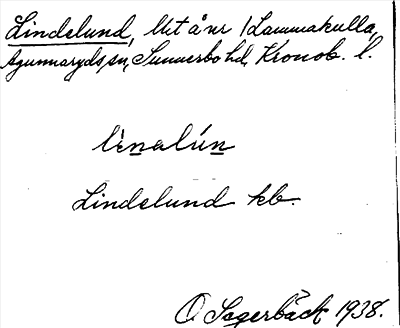 Lindelund, Utå nr 1 Lammakulla,
Agunnaryds sn, Sunnerbo hd, Kronob. l.
lìnalún
Lindelund kb.
O Sagerbäck 1938.